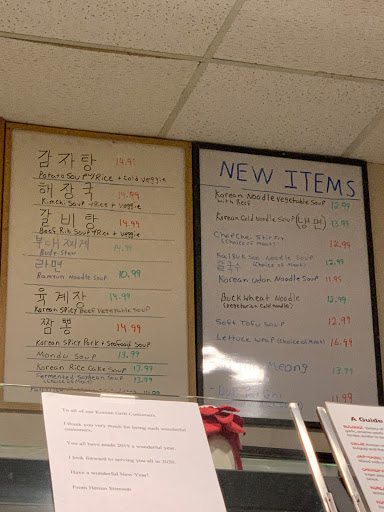 감자탕 14.91
Potato Soup w/ Rice + Cold veggie
해장국 14.99
Kimchi Soup w/ Rice + veggie
갈비탕 14.99
Beef Rib Soup w/ Rice + veggie
부대찌게 14.99
Bude Stew
라면
Ramen Noodle Soup 10.99
육계장 14.99
Korean Spicy Beef Vegetable Soup
짬뽕 14.99
Korean Spicy Pork + Seafood Soup
Mandu Soup 13.99
Korean Rice Cake Soup 13.99
Fermented Soybean Soup 13.99
NEW ITEMS
Korean Noodle Vegetable Soup 12.99
with Beef
Korean Cold Noodle Soup (냉면) 13.99
Chapchae Stir Fry
(Choice of Meat) 12.99
Kal Guk Soo Noodle Soup 12.99
칼국수 (Choice of Meat)
Korean Udon Noodle Soup 11.95
Buckwheat Noodle 12.99
(Vegetarian Cold noodle)
Soft Tofu Soup 12.99
Lettuce Wrap (Choice of Meat) 16.99
To all of our Korean Grill Customers,
I thank you very much for being such wonderful
customers.
You all have made 2019 a wonderful year.
I look forward to serving you all in 2020.
Have a wonderful New Year!
A GUIDE